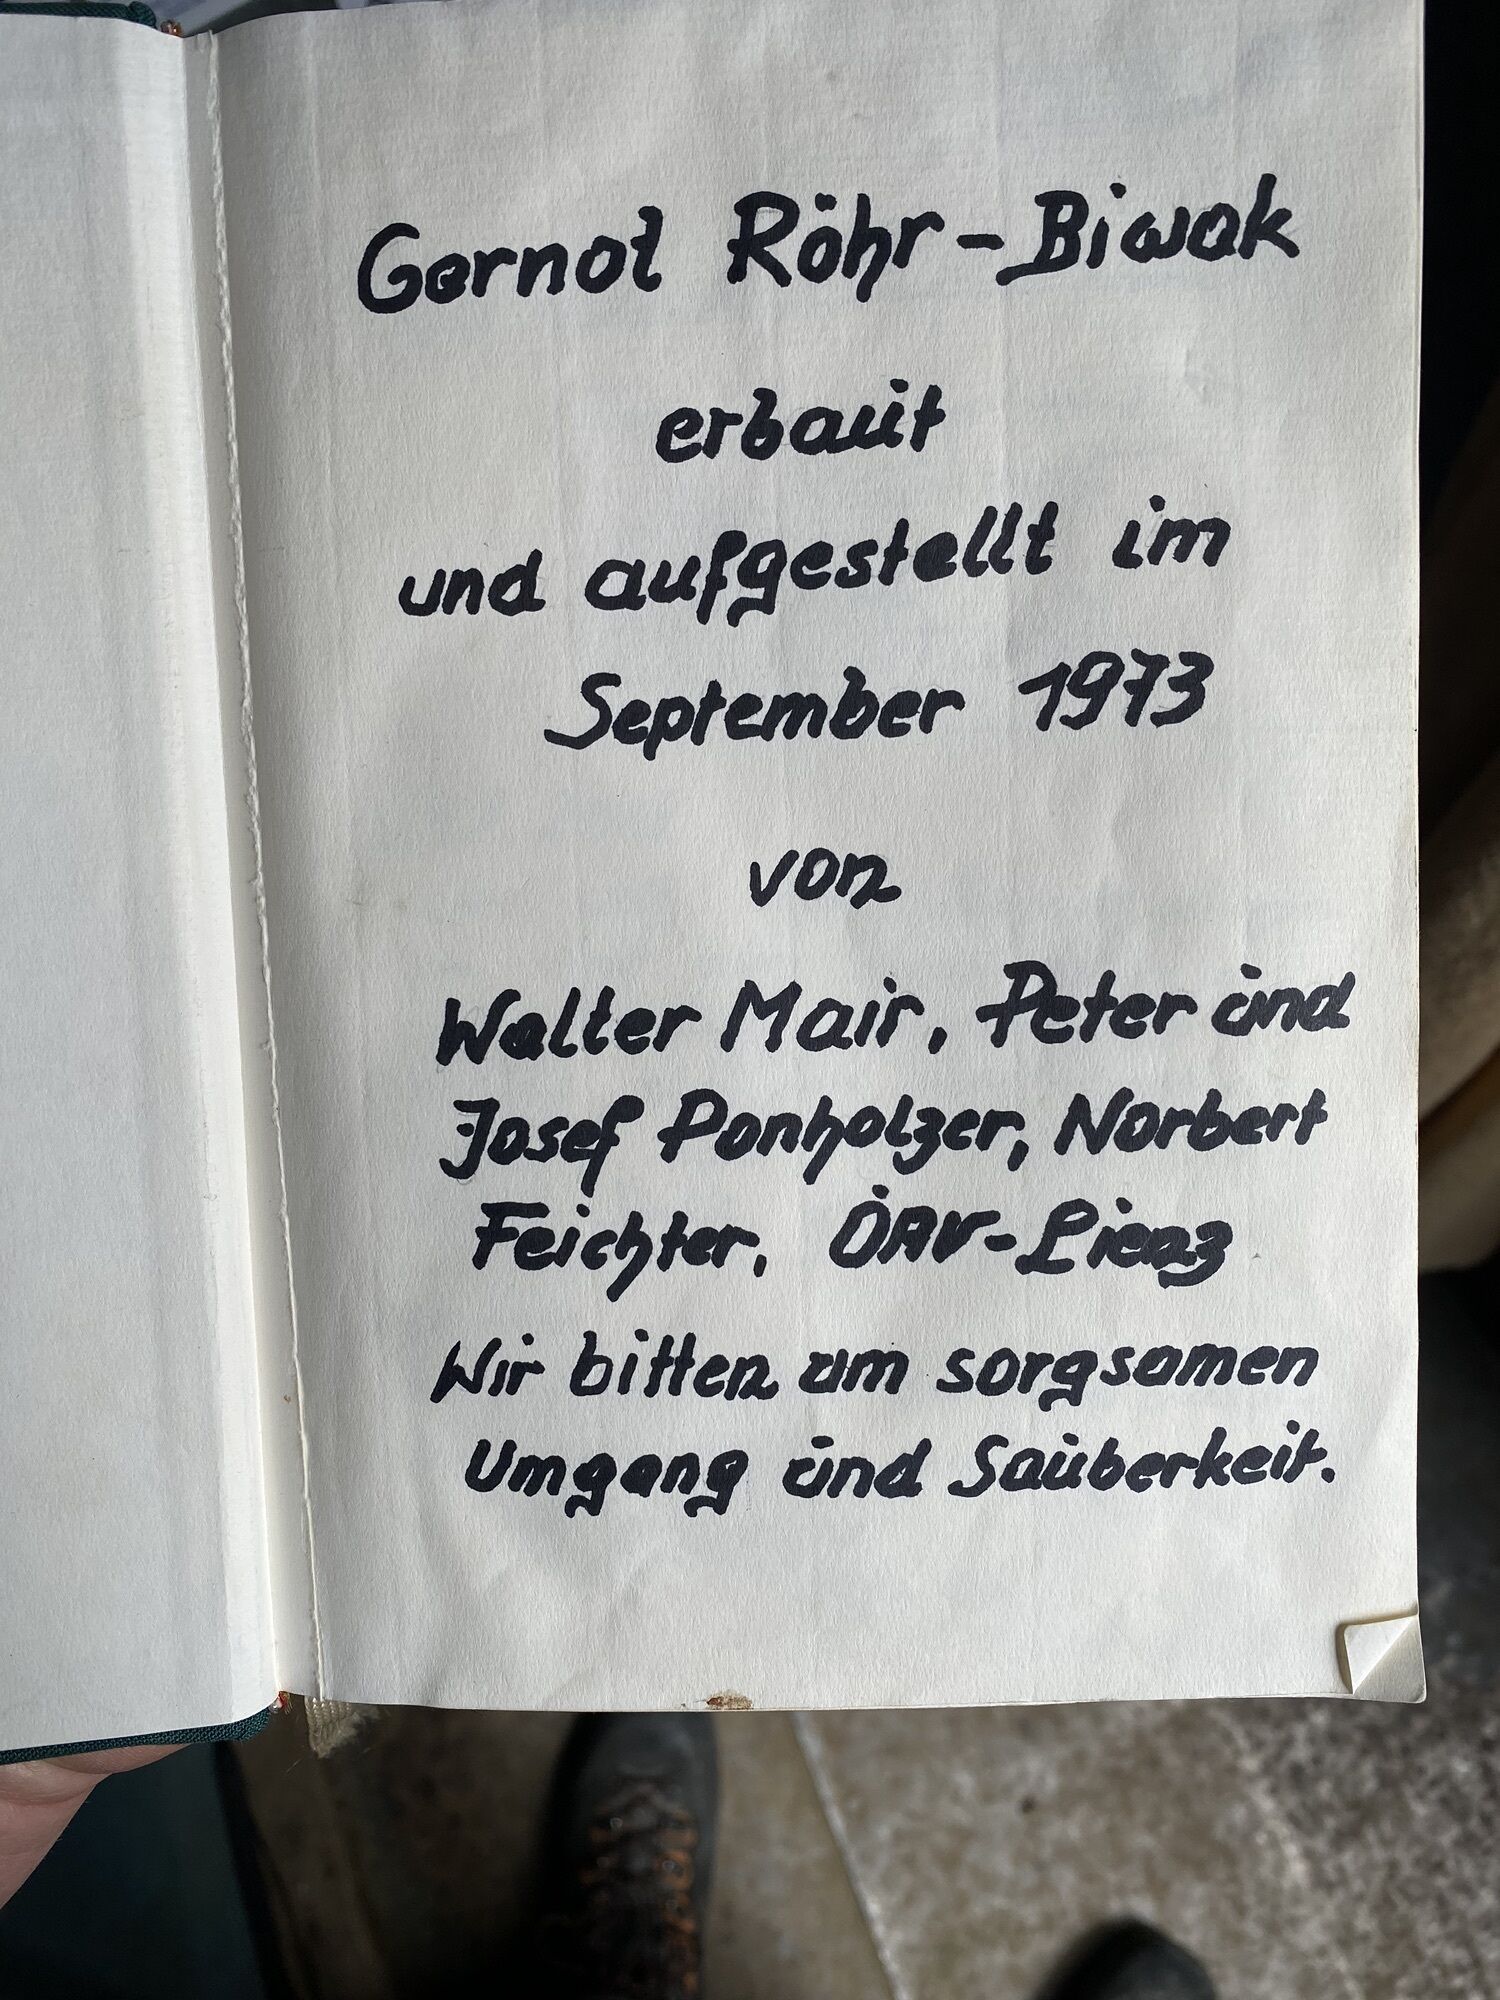 Gernot Röhr-Biwak
erbaut
und aufgestellt im
September 1973
von
Walter Mair, Peter und
Josef Ponholzer, Norbert
Feichter, ÖAV-Lienz
Wir bitten um sorgsamen
Umgang und Sauberkeit.